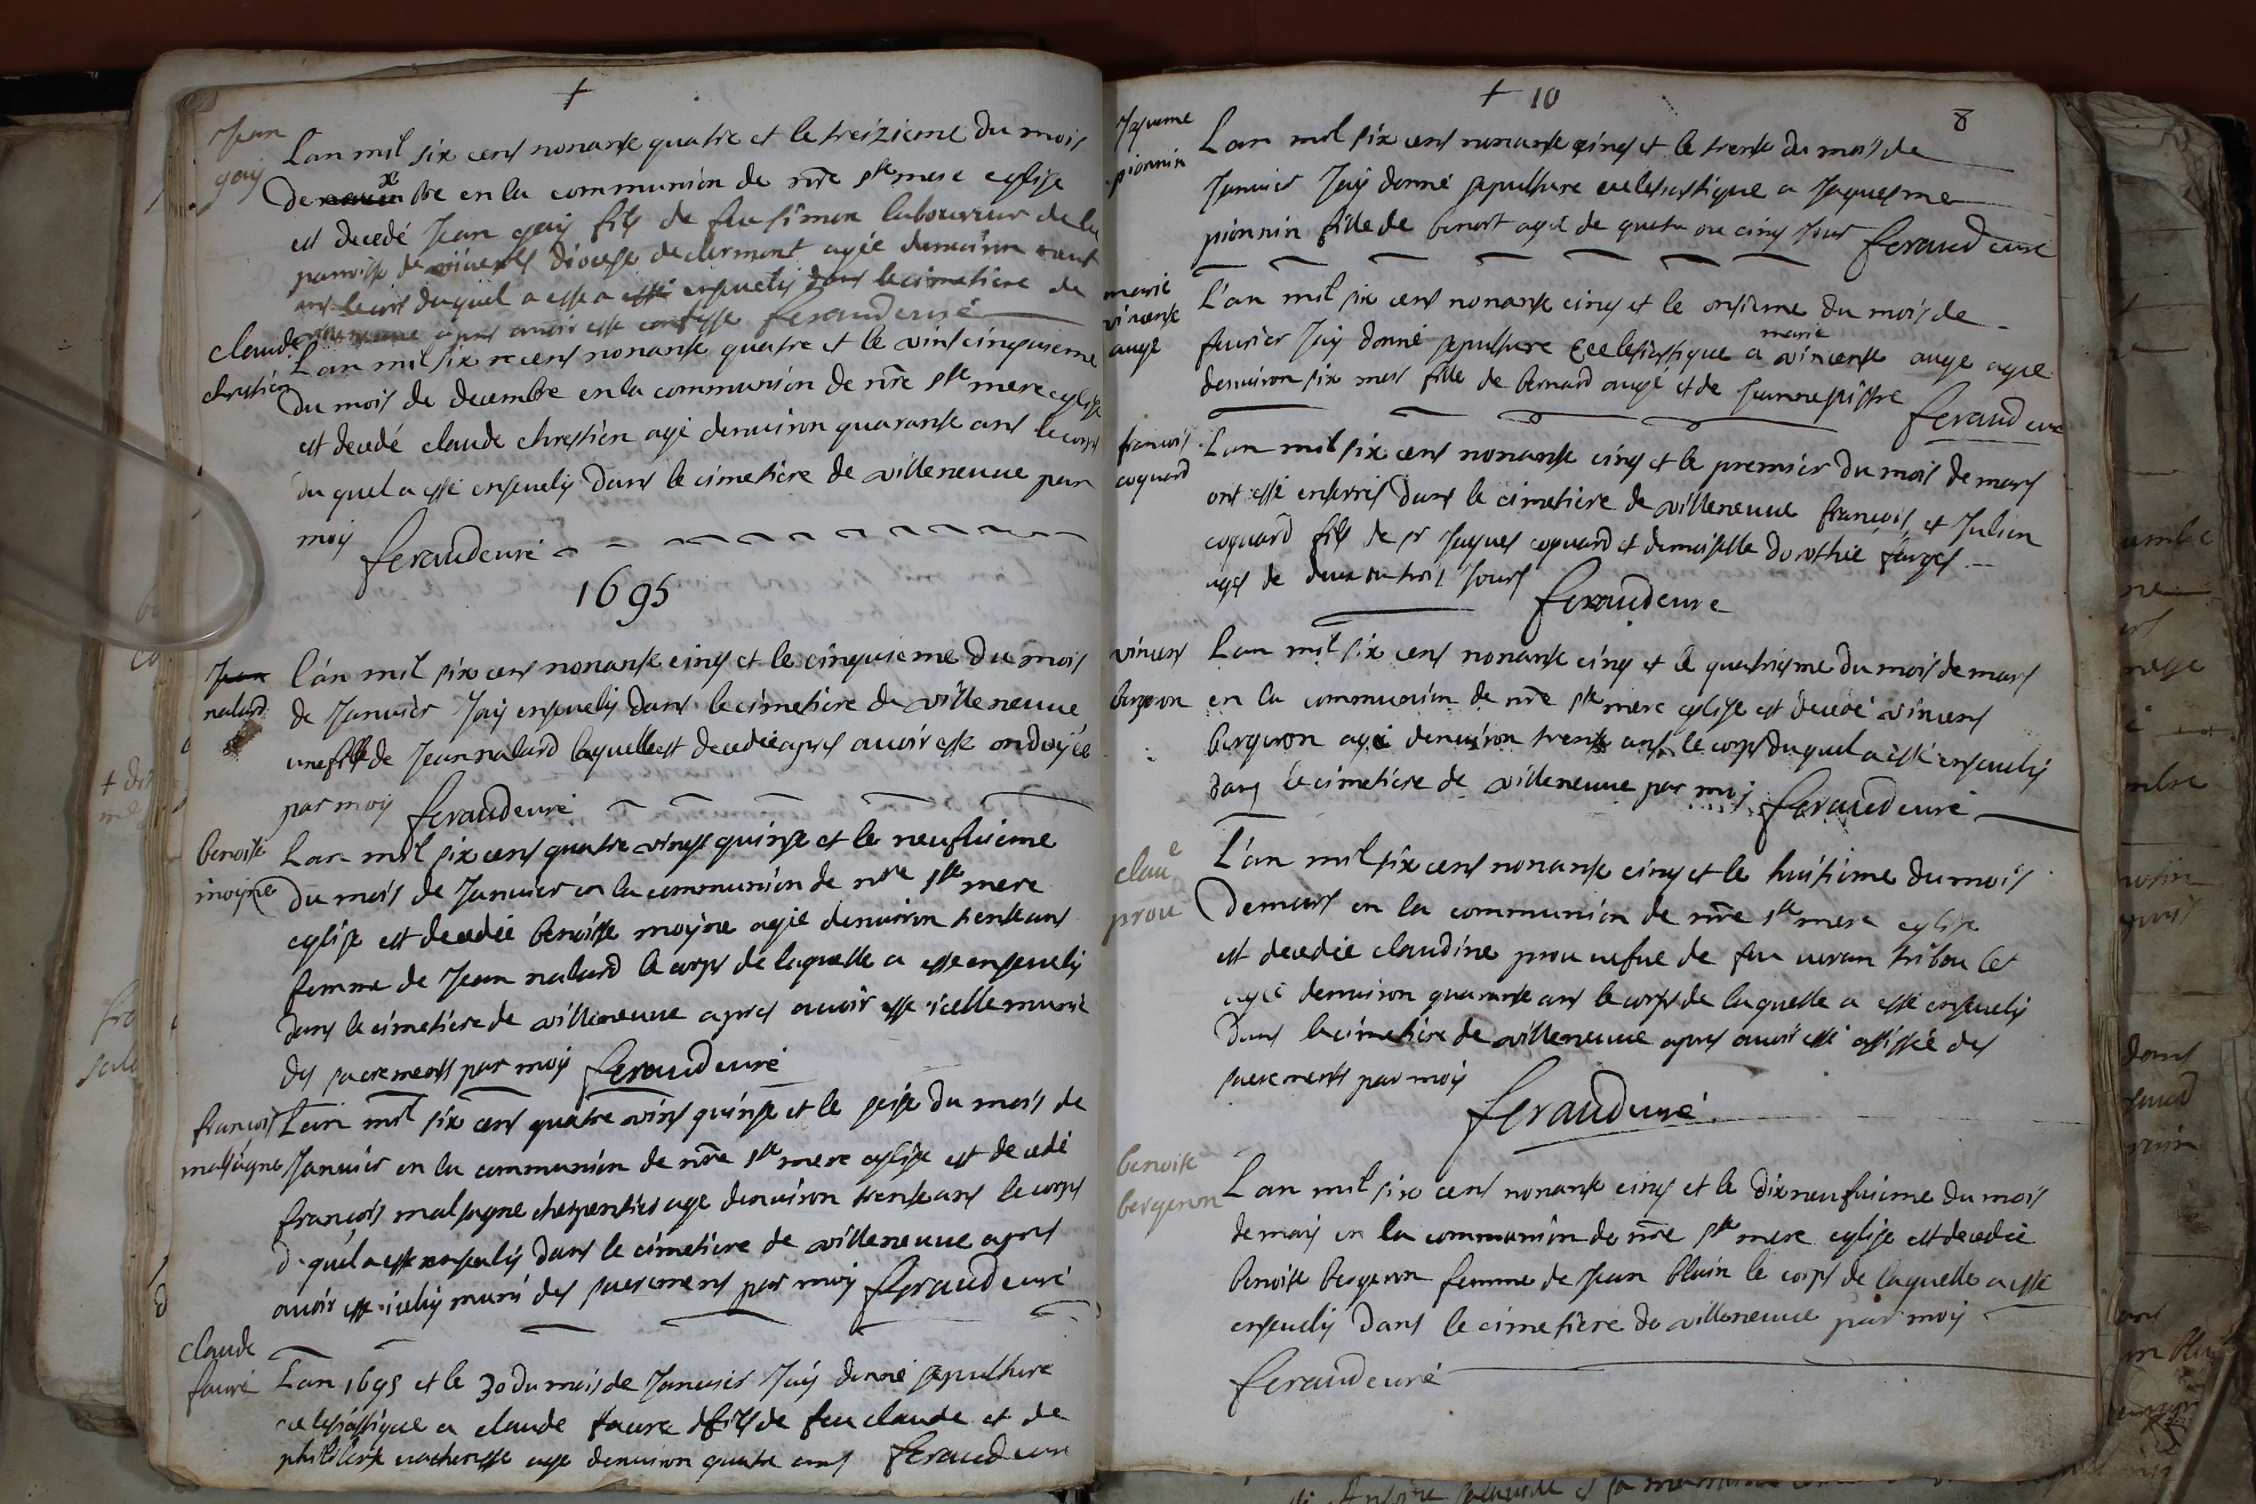 +
Jean
gay
Lan mil six cens nonante quatre et le treizieme du mois
de xbre en la communion de nre ste mere eglise
est decedé Jean gay fils de feu simon laboureur de la
paroisse de diocese de clermont agée denuiron
ans le cors duquel a esté enseuely dans le cimetiere de
villeneuue apres auoir esté confessé feraud curé
claude
chrestien
Lan mil six cens nonante quatre et le vint cinquieme
du mois de decembre en la communion de nre ste mere eglise
est decedé claude chrestien agé denuiron quarante ans le corps
du quel a esté enseuely dans le cimetiere de villeneuue par
moy feraud curé
1695
Jean
nalard
l'an mil six cens nonante cinq et le cinquieme du mois
de Januier Jay enseuely dans le cimetiere de villeneuue
une fille de Jean nalard laquelle est decedée apres auoir esté ondoyée
par moy feraud curé
benoite
moyne
Lan mil six cens quatre vingt quinze et le neufuieme
du mois de Januier en la communion de nre ste mere
eglise est decedée benoiste moyne agée denuiron trente ans
femme de Jean nalard le corps de laquelle a esté enseuely
dans le cimetiere de villeneuue apres auoir esté icelle munie
des sacrements par moy feraud curé
francois
malsagne
Lan mil six cens quatre vins quinze et le seise du mois de
Januier en la communion de nre ste mere eglise est decedé
francois malsagne cherpentier age denuiron trente ans le corps
d quel a esté enseuely dans le cimetiere de villeneuue apres
auoir esté iceluy muni des sacremens par moy feraud curé
claude
faure
Lan 1695 et le 30 du mois de Januier Jay donné sepulture
eclesiastique a claude faure fils de feu claude et de
philiberte vacheresse age denuiron quatre ans feraud cure
+ 10
8
Jaqueme
pionnin
Lan mil six cens nonante cinq et le trente du mois de
Januier Jay donné sepulture eclesiastique a Jaquesme
pionnin fille de benoit agee de quatre ou cinq jour feraud curé
marie
vincente
augé
L'an mil six cens nonante cinq et le onsieme du mois de
feurier Jay donné sepulture Ecclesiastique a marie vincente auge agée
denuiron six mois fille de bernard augé et de Jeanne pistre
feraud curé
francois
coquard
Lan mil six cens nonante cinq et le premier du mois de mars
ont esté enterrés dans le cimetiere de villeneuue francois et Julien
coquard fils de sr Jaques coquard et demoiselle dorothée farges
agés de deux ou trois jours feraud cure
vincens
bergeron
Lan mil six cens nonante cinq et le quatrieme du mois de mars
en la communion de nre ste mere eglise est decedé vincens
bergeron agé denuiron trente ans le corps duquel a esté enseuely
dans le cimetiere de villeneuue par moy feraud curé
clau e
prou
L'an mil six cens nonante cinq et le huitieme du mois
de mars en la communion de nre ste mere eglise
est decedée claudine prou uefue de feu uran tribou let
agée denuiron quarante ans le corps de laquelle a esté enseuely
dans le cimetiere de villeneuue apres auoir esté assistée des
sacrements par moy
feraud curé
benoite
bergeron
Lan mil six cens nonante cinq et le dix neufuieme du mois
de mars en la communion de nre ste mere eglise est decedée
benoite bergeron femme de Jean blain le corps de laquelle a esté
enseuely dans le cimetiere de villeneuue par moy
feraud curé